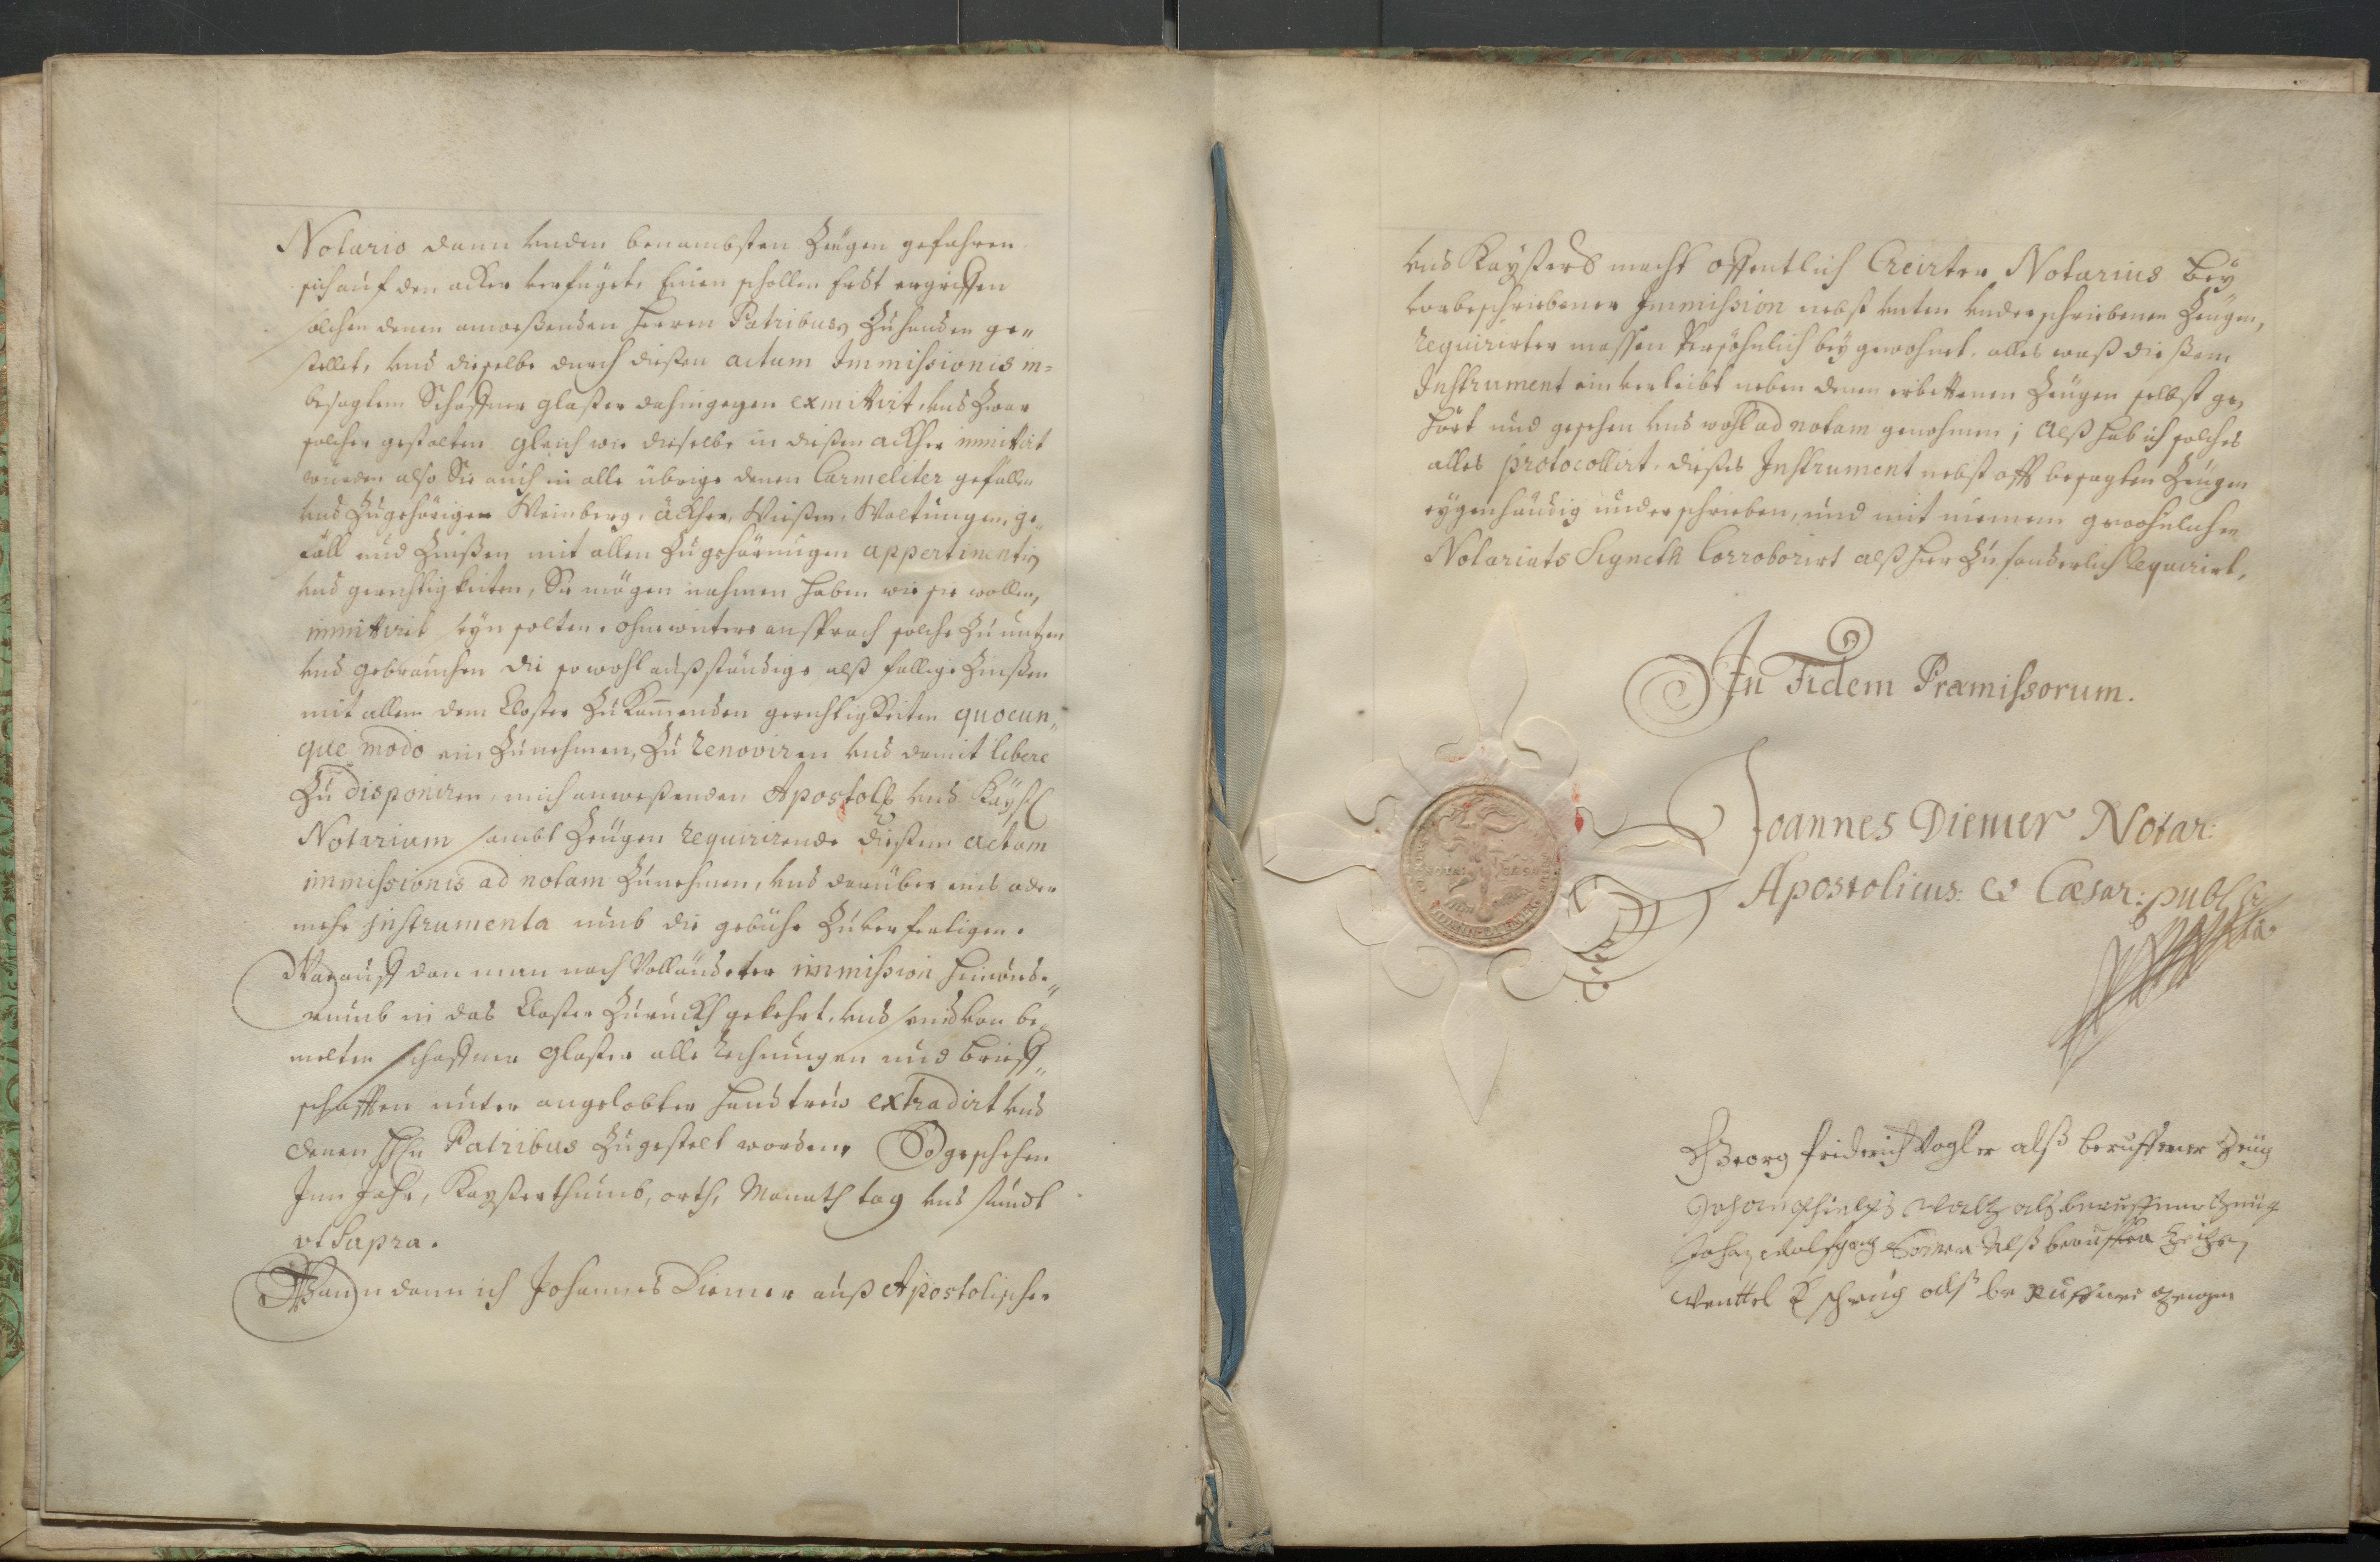 Notario dann unden benambsten Zeügen gefahren
sich auf den acker verfüget, Einen schollen Erdt ergriffen
solchen denen anweßenden Herren Patribus Zuhanden ge„
stellet, und dieselbe durch dießen actum Immissionis in=
besagtem Schaffner Glaßer dahingegen exmittirt, und Zwar
solcher gestalten gleich wie dieselbe in dießen ackher immittirt
würden also Sie auch in alle übrige denen Carmeliter gefällen
und Zugehörigen Weinberg, äckher, Wießen, Waltungen, ge„
fäll und Zinßen mit allen Zugehörungen appertinentiis
und gerechtigkeiten, Sie mögen nahmen haben wie sie wollen,
immittirt seyn solten, ohne weitere anspruch solche Zu nutzen
und gebrauchen die sowohl außständige alß fallige Zinßen
mit allen dem Closter Zukommenden gerechtigkeiten quocun„
que modo ein Zunehmen, Zu renoviren und damit libere
Zu disponiren, mich anweßenden Apostol. und Kayßl.
Notarium sambt Zeügen requirirende dießen actum
immissionis ad notam Zunehmen, und darüber eins oder
mehr Instrumenta umb die gebühr Zuverfertigen.
Worauff dan man nach Vollendeter immission hinwide„
rumb in das Closter Zuruckh gekehrt, und seind von be„
melten schaffner Glaßer alle rechnungen und brieff„
schafften unter angelobter handtreü extradirt und
denen HHn Patribus Zugestelt worden, So geschehen
Imm Jahr, Kayßerthumb, orth, Monath tag und stundt
ut supra.
Wann dann ich Johannes Diemer auß Apostolischer
und Kayßers macht offentlich Creirter Notarius bey
vorbeschriebener Immission nebst unten underschriebenen Zeügen,
requirirter massen Persöhnlich beygewohnet, alles waß dießem
Instrument einverleibt neben denen erbettenen Zeügen selbst ge„
hört und gesehen und wohl ad notam genohmen; Alß hab ich solches
alles protocollirt, dießes Instrument nebst offt besagten Zeügen
eygenhändig underschrieben, und mit meinem gewohnlichen
Notariats Signeth Corroborirt alß hier Zu sonderlich Requirirt,
In Fidem Præmissorum.
Joannes Diemer Notar:
Apostolicus: & Cæsar: publ:
Georg friderich Vogler alß beruffener Zeüg
Johan Waltz als beruffner Zeüg
Johan Wolfgang Alß beruffen Zeüge
alß beruffner Zeugen